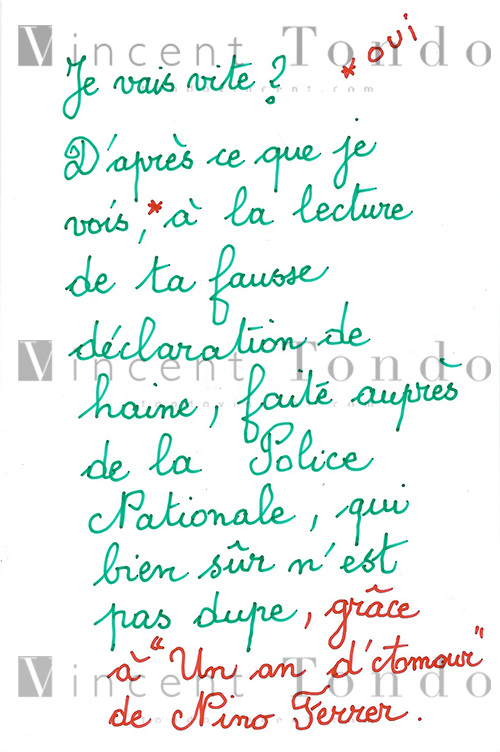 Vincent Tondo
* oui
Je vais vite ?
D'après ce que je
vois,* à la lecture
de ta fausse
déclaration de
Vincent Tondo
haine, faite auprès
de la Police
Nationale, qui
bien sûr n'est
pas dupe, grâce
à "Un an d'Amour"
Vincent Tondo
de Nino Ferrer.